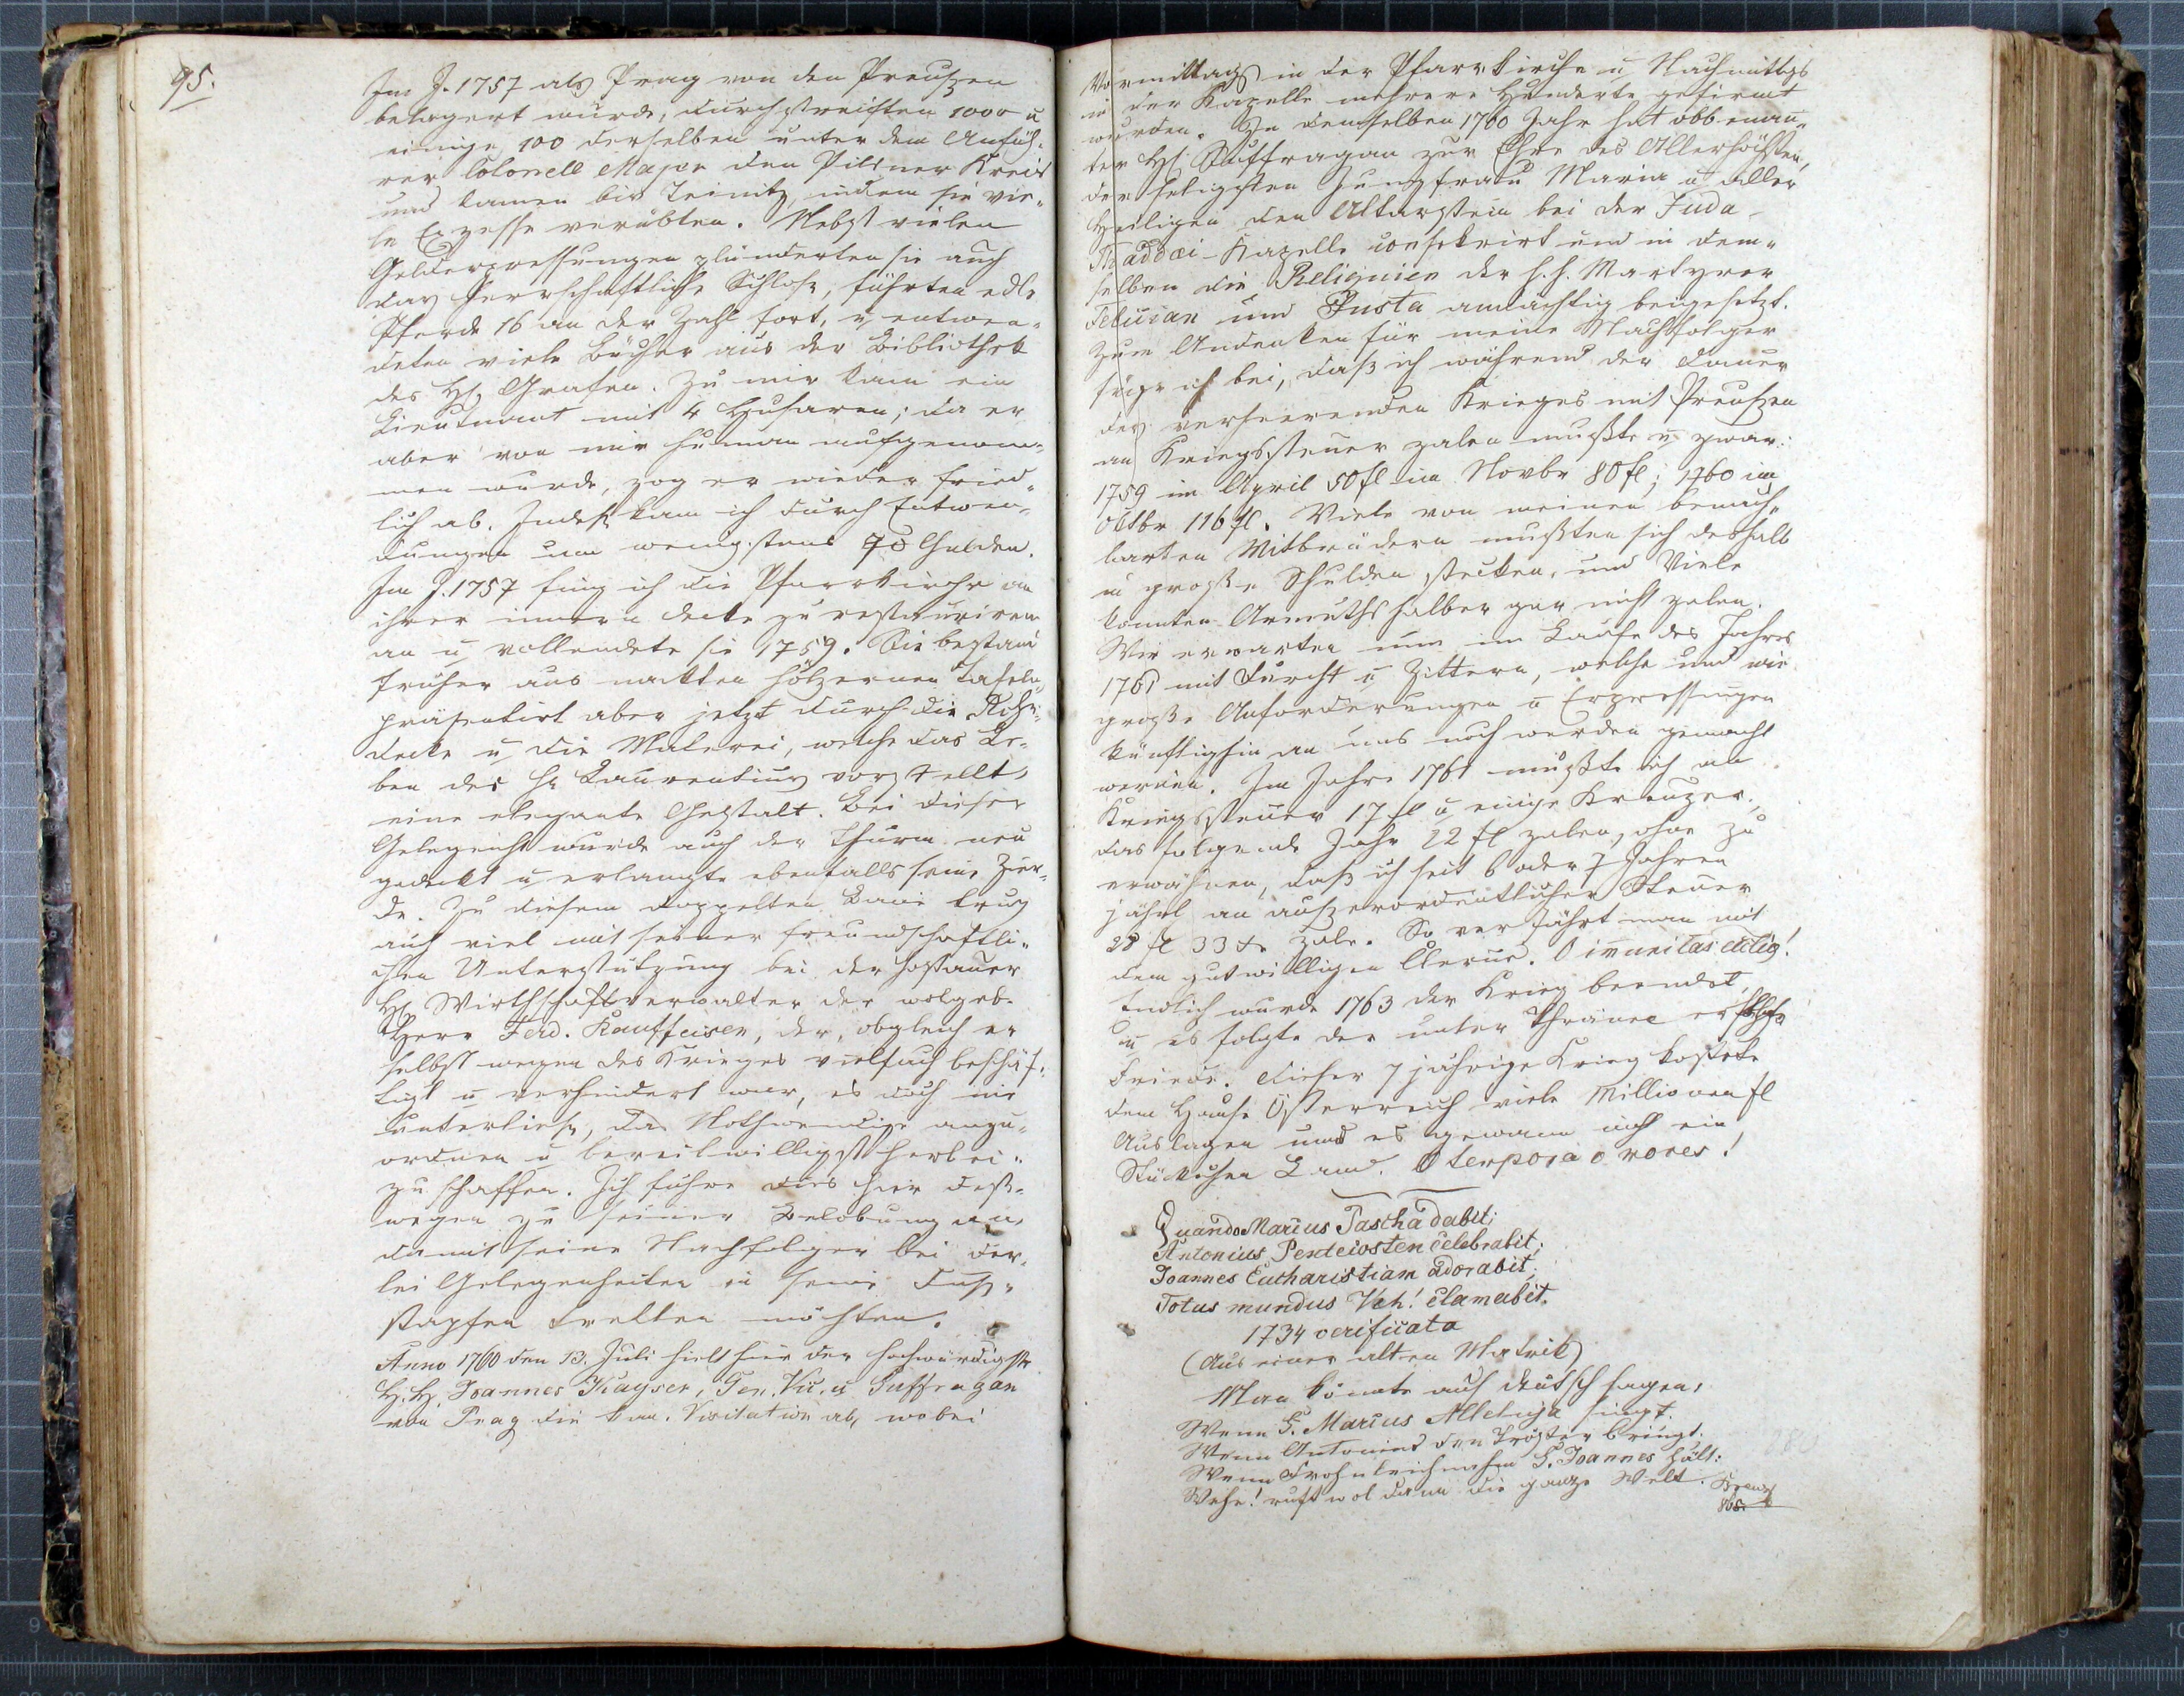 95.
Im J. 1757 als Prag von den Preußen
belagert wurde, durchstreiften 1000 u
einige 100 derselben unter dem Anfüh-
rer Colonell Major den Pilsner Kreis
und kamen bis Teinitz, indem sie vie-
le Exzesse verübten. Nebst vielen
Gelderpressungen plünderten sie auch
das herrschaftliche Schloß, führten edle
Pferde 16 an der Zahl fort, u entwen-
deten viele Bücher aus der Bibliothek
des H. Grafen. Zu mir kam ein
Lieutnant mit 4 Husaren; da er
aber von mir human aufgenom-
men wurde, zog er wieder fried-
lich ab. Indeß kam ich durch Entwen-
dungen um wenigstens 70 Gulden.
Im J. 1757 fing ich die Pfarrkirche an
ihrer innern Decke zu restauriren
an u vollendete sie 1759. Sie bestand
früher aus nackten hölzernen Tafeln,
präsentirt aber jetzt durch die Rohr-
decke u die Malerei, welche das Le-
ben des h. Laurentius vorstellt,
eine elegante Gestalt. Bei dieser
Gelegenheit wurde auch der Thurm neu
gedeckt u erlangte ebenfalls seine Zier-
de. Zu diesem doppelten Baue trug
auch viel mit seiner freundschaftli-
chen Unterstützung bei der Hostauer
H. Wirthschaftsverwalter der wolgeb.
Herr Ferd. Kauffeisen, der, obgleich er
selbst wegen des Krieges vielfach beschäf-
tigt u verhindert war, es doch nie
unterließ, das Nothwendige anzu-
ordnen u bereitwilligst herbei-
zu schaffen. Ich führe dies hier deß-
wegen zu seiner Belobung an,
damit seine Nachfolger bei der-
lei Gelegenheiten in seine Fuß-
stapfen tretten möchten.
Anno 1760 den 13. Juli hielt hier der hochwürdigste
H. H. Joannes Kayser, Gen. Vic. u Suffragan
von Prag die kan. Visitation ab, wobei
Vormittags in der Pfarrkirche u Nachmittgs
in der Kapelle mehrere Hunderte gefirmt
wurden. In demselben 1760 Jahr hat obbenan-
ter H. Suffragan zur Ehre des Allerhöchsten,
der seligsten Jungfrau Maria u aller
Heiligen den Altarstein bei der Juda
Thaddaei-Kapelle consekrirt und in dem-
selben die Reliquien der h. h. Martyrer
Felician und Justa andächtig beigesetzt.
Zum Andenken für meine Nachfolger
füge ich bei, daß ich während der Dauer
des verheerenden Krieges mit Preußen
an Kriegssteuer zalen mußte u zwar:
1759 im April 50 fl im Novbr 80 fl; 1760 im
Octbr 116 fl. Viele von meinen benach-
barten Mitbrüdern mußten sich deshalb
in große Schulden stecken, und Viele
konnten Armuths halber gar nicht zalen.
Wir erwarten nun im Laufe des Jahres
1761 mit Furcht u Zittern, welche und wie
große Anforderungen u Erpressungen
künftighin an uns noch werden gemacht
werden. Im Jahre 1761 mußte ich an
Kriegssteuer 17 fl u einige Kreuzer,
das folgende Jahr 22 fl zalen, ohne zu
erwähnen, daß ich seit 6 oder 7 Jahren
jährl an außerordentlicher Steuer
28 fl 33 x zale. So verfährt man mit
dem gutwilligen Clerus. O imunitas
Endlich wurde 1763 der Krieg beendet,
u es folgte der unter Thränen ersehnte
Friede. Dieser 7 jährige Krieg kostete
dem Hause Österreich viele Millionen fl
Auslagen und es gewann nicht ein
Stückchen Land. O tempora o mores!
Quando Marcus Pascha dabit;
Antonius Pentecosten celebrabit;
Joannes Eucharistiam adorabit;
Totus mundus Vah! clamabit.
1734 verificata
(Aus einer alten Matrik)
Man könnte auch deutsch sagen:
Wenn S. Marcus Alleluja singt.
Wenn Antonius den Tröster bringt.
Wenn Frohnleichnahm S. Joannes hält:
Wehe! ruft wol dann die ganze Welt.